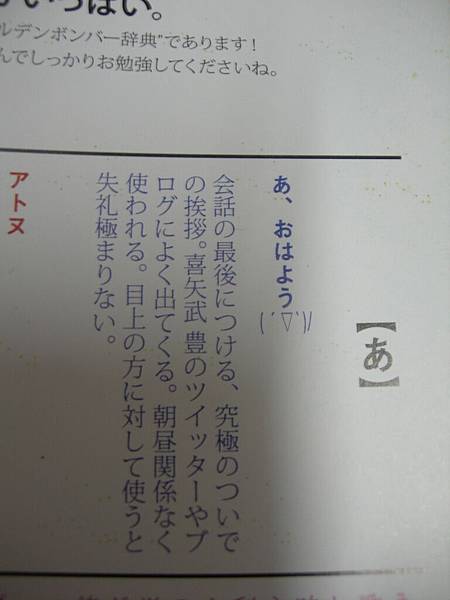 いっぱい。
ルデンボンバー辞典”であります！
んでしっかりお勉強してくださいね。
【あ】
あ、おはよう(´▽`)ﾉ
会話の最後につける、究極のついで
の挨拶。喜矢武 豊のツイッターやブ
ログによく出てくる。朝昼関係なく
使われる。目上の方に対して使うと
失礼極まりない。
アトヌ